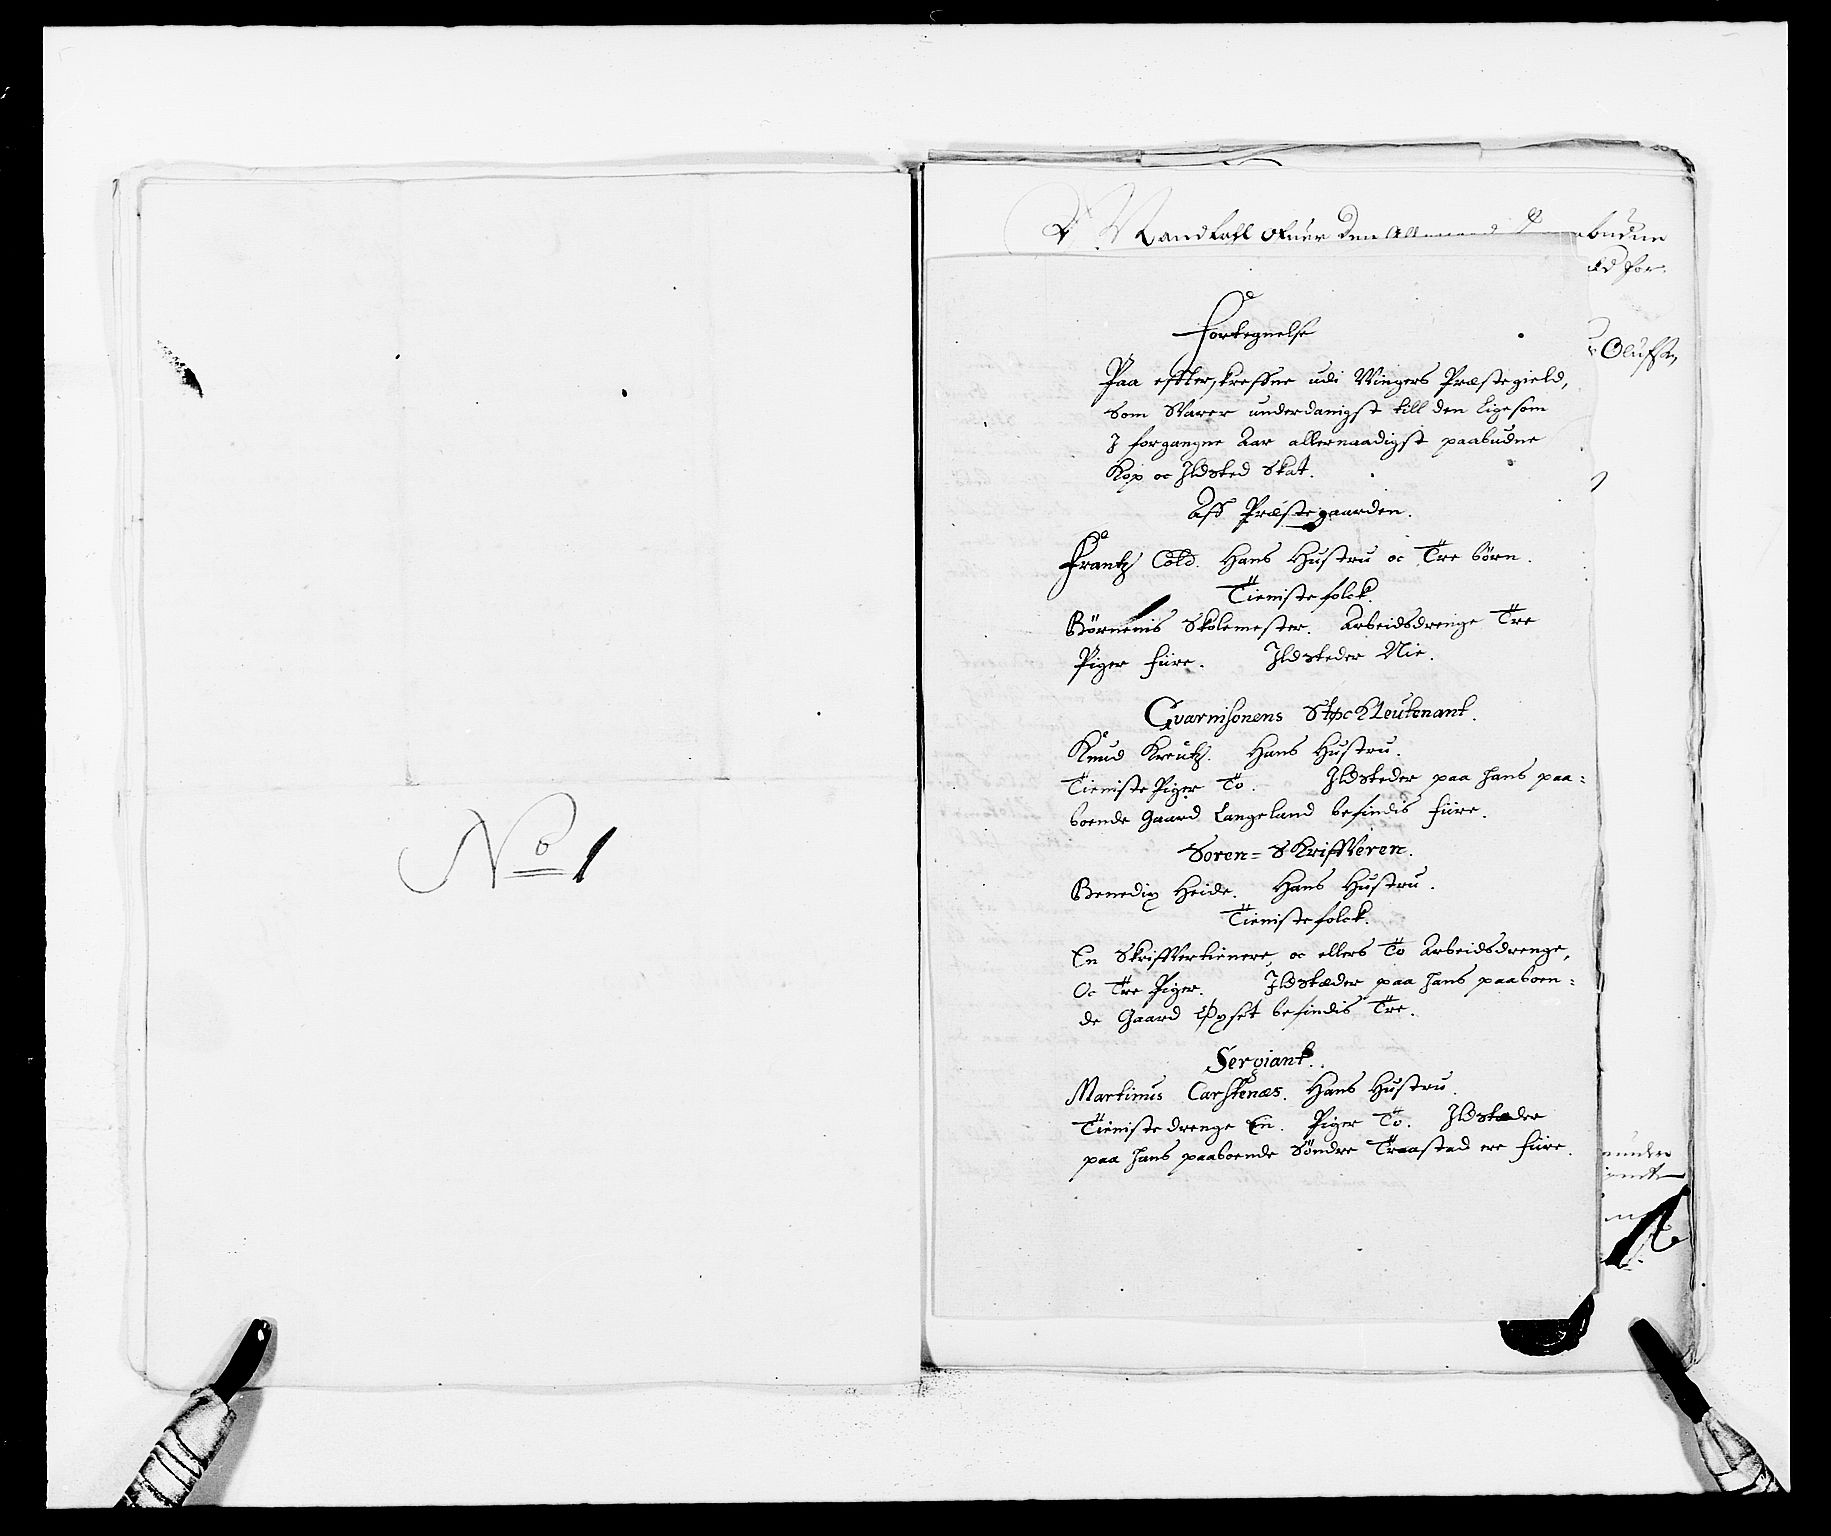 No 1
Mandtall ofuer den
budne
ld for
Olufsen
Fortegnelse
Paa effterskreffne udi Wingers Præstegield,
Som Svarer underdanigst till den ligesom
J forgangne Aar allernaadigst paabudne
Kop oc Jldsted Skat.
Aff Præstegaarden.
Frantz Cold. Hans Hustru oc Tre börn.
Tienistefolck.
Börnenis Skolemester. Arbeidsdrenge Tre
Piger fiire. Jldsteder Nie.
Gvarnisonens Leutenant.
Knud Kreutz. Hans Hustru.
Tieniste Piger To. Jldsteder paa hans paa=
boende Gaard Langeland befindis fiire.
Soren=Skrifveren.
Benedix Heide. Hans Hustru.
Tienistefolck.
En Skrifvertienere, oc ellers To Arbeidsdrenge,
Oc Tre Piger. Jldstæder paa hans paaboen=
de Gaard befindis Tre.
Sergiant.
Martinus Carstenæs. Hans Hustru.
Tienistedrenge En. Piger To. Jldstæder
paa hans paaboende Söndre Traastad ere fiire.